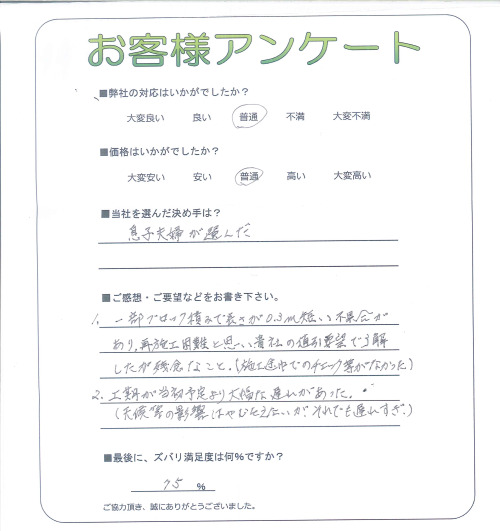 お客様アンケート
■弊社の対応はいかがでしたか？
大変良い 良い 普通 不満 大変不満
■価格はいかがでしたか？
大変安い 安い 普通 高い 大変高い
■当社を選んだ決め手は？
息子夫婦が選んだ
■ご感想・ご要望などをお書き下さい。
1. 一部ブロック積みで長さが0.3m短い不具合が
あり、再施工困難と思い、貴社の値引要望で了解
したが残念なこと。(施工途中でのチェック等がなかった)
2. 工期が当初予定より大幅な遅れがあった。
(天候等の影響はやむをえないが、それでも遅れすぎ。)
■最後に、ズバリ満足度は何%ですか？
75 %
ご協力頂き、誠にありがとうございました。